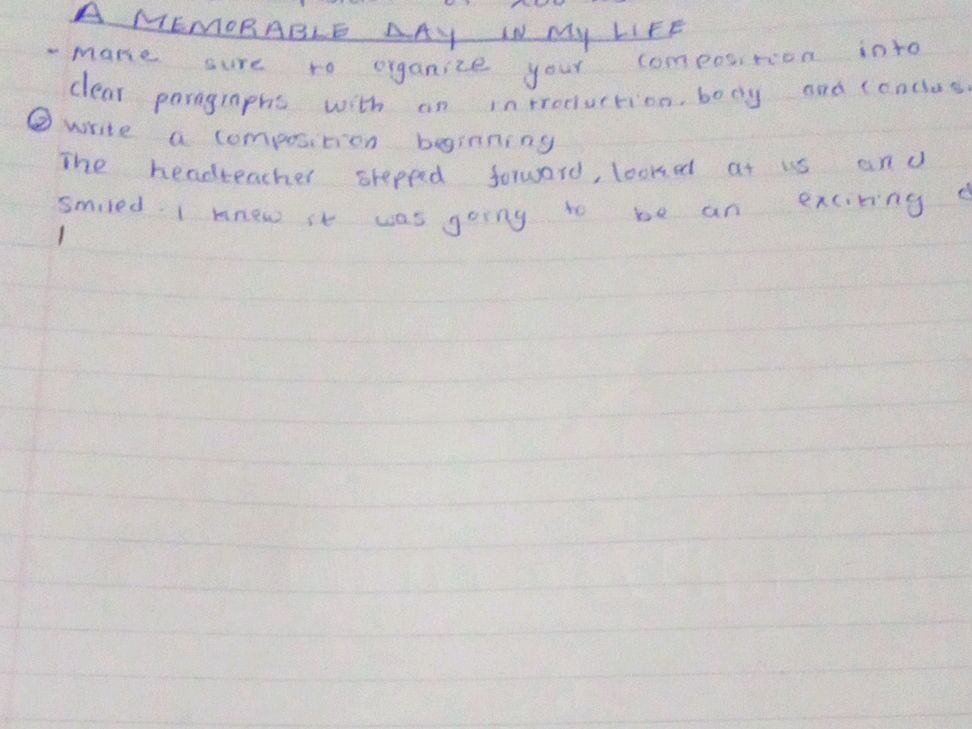 A MEMORABLE DAY IN MY LIFE
- make sure to organize your composition into
clear paragraphs with an introduction, body and conclus
② write a composition beginning
The headteacher stepped forward, looked at us and
smiled. I knew it was going to be an exciting